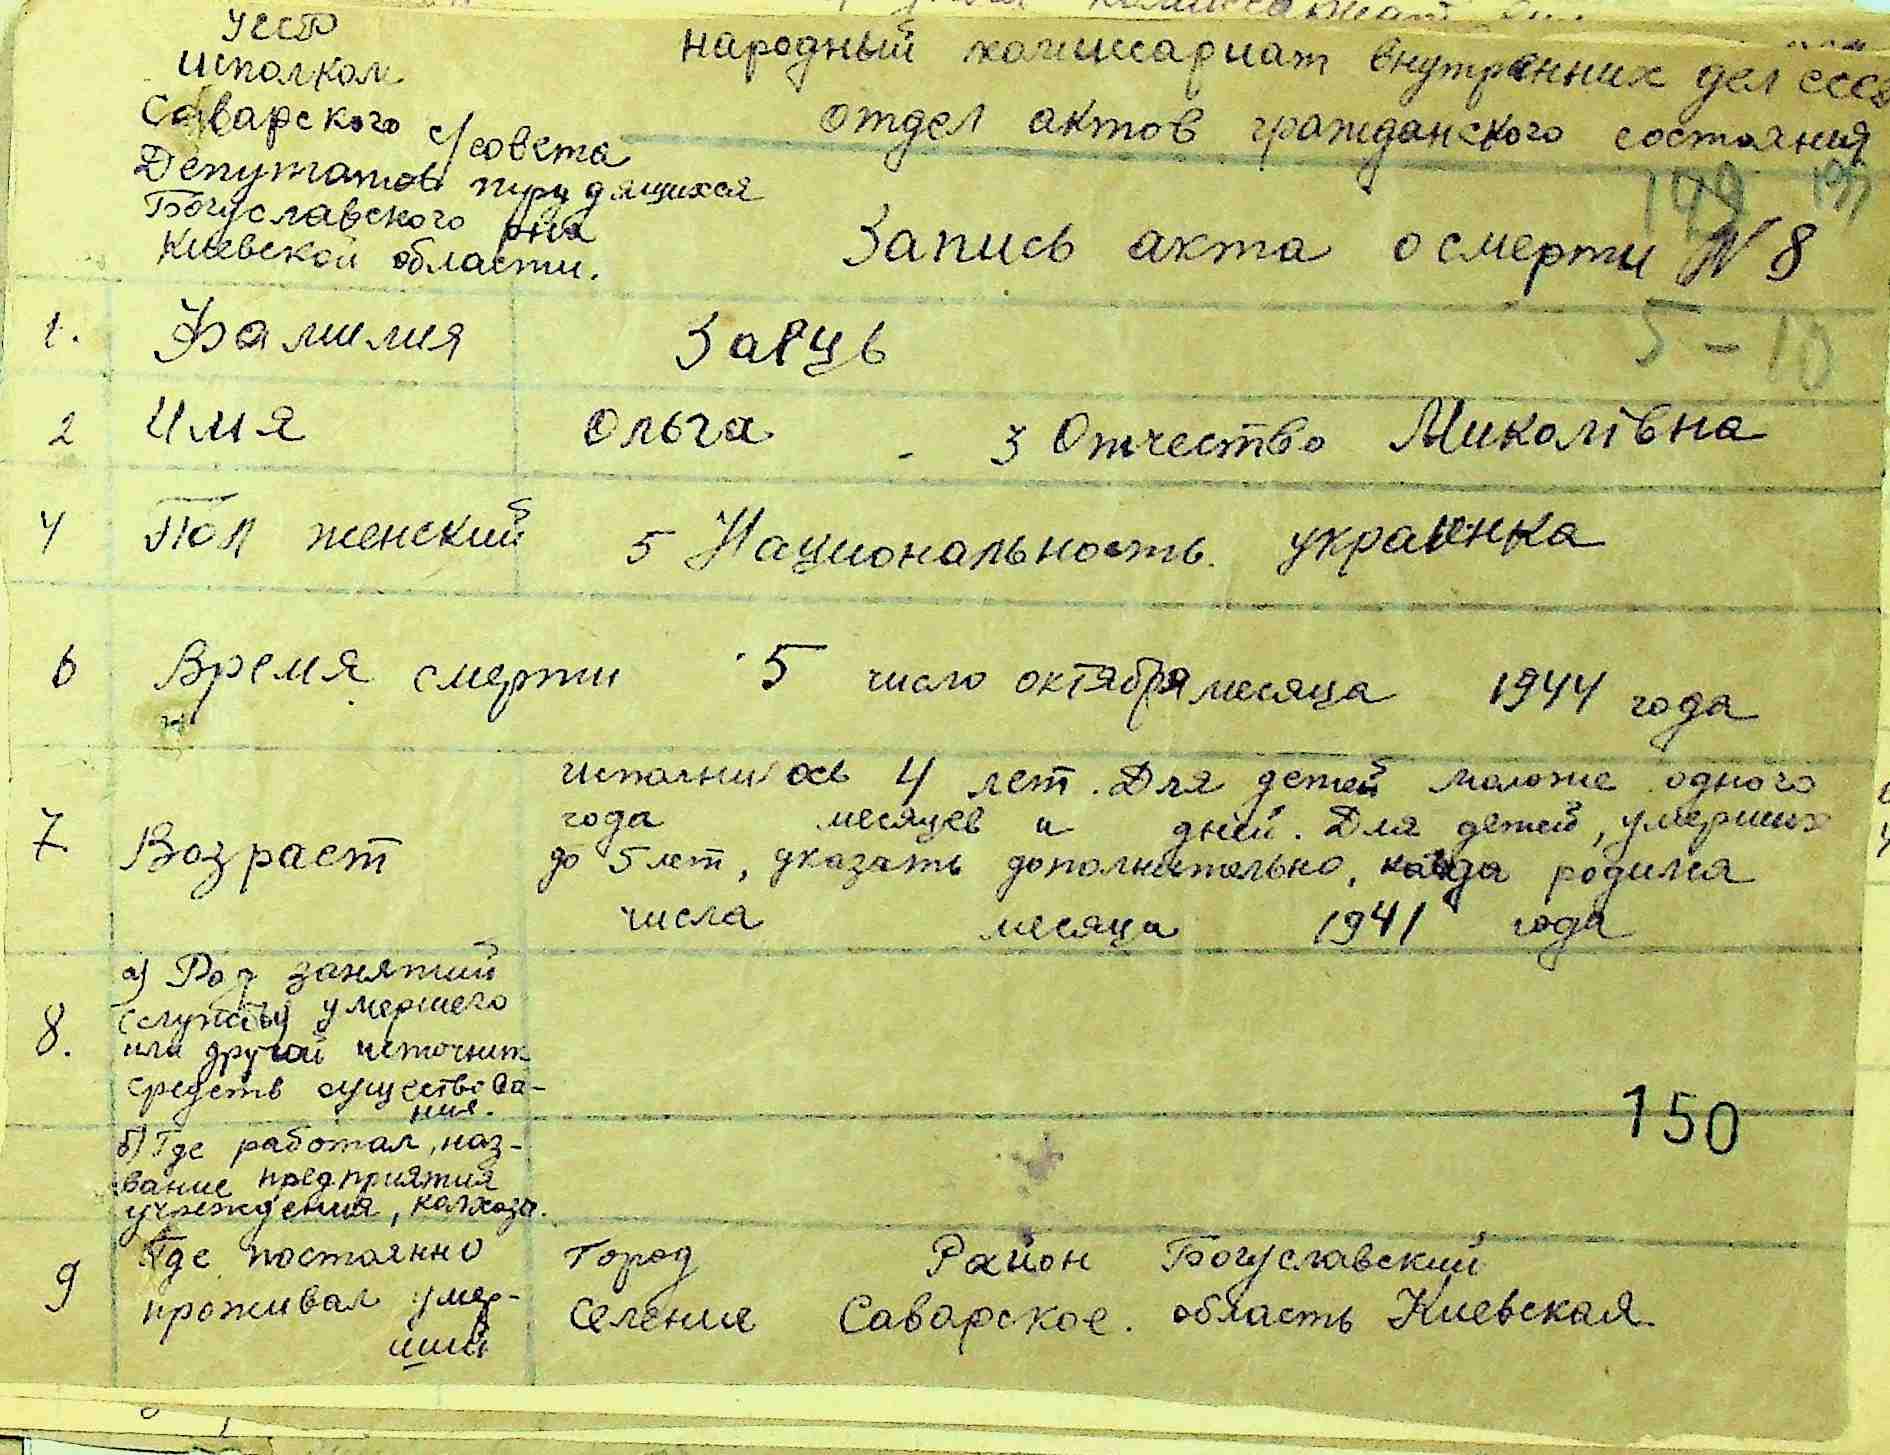 УССР
исполком
Саварского с/совета
Депутатов трудящихся
Богуславского р-на
Киевской области.
народный комиссариат внутренних дел СССР
отдел актов гражданского состояния
Запись акта о смерти № 8
5-10
1. Фамилия Заяць
2 Имя Ольга - 3 Отчество Миколівна
4 Пол женский 5 Национальность. украинка
6 Время смерти 5 число октября месяца 1944 года
7. Возраст
исполнилось 4 лет. Для детей моложе одного
года месяцев и дней. Для детей, умерших
до 5 лет, указать дополнительно, когда родился
числа месяца 1941 года
8. а) Род занятий
(службы) умершего
или другой источник
средств существова-
ния.
б) Где работал, наз-
вание предприятия
учреждения, колхоза.
150
9 Где постоянно
проживал умер-
ший
Город Район Богуславский
Селение Саварское. область Киевская